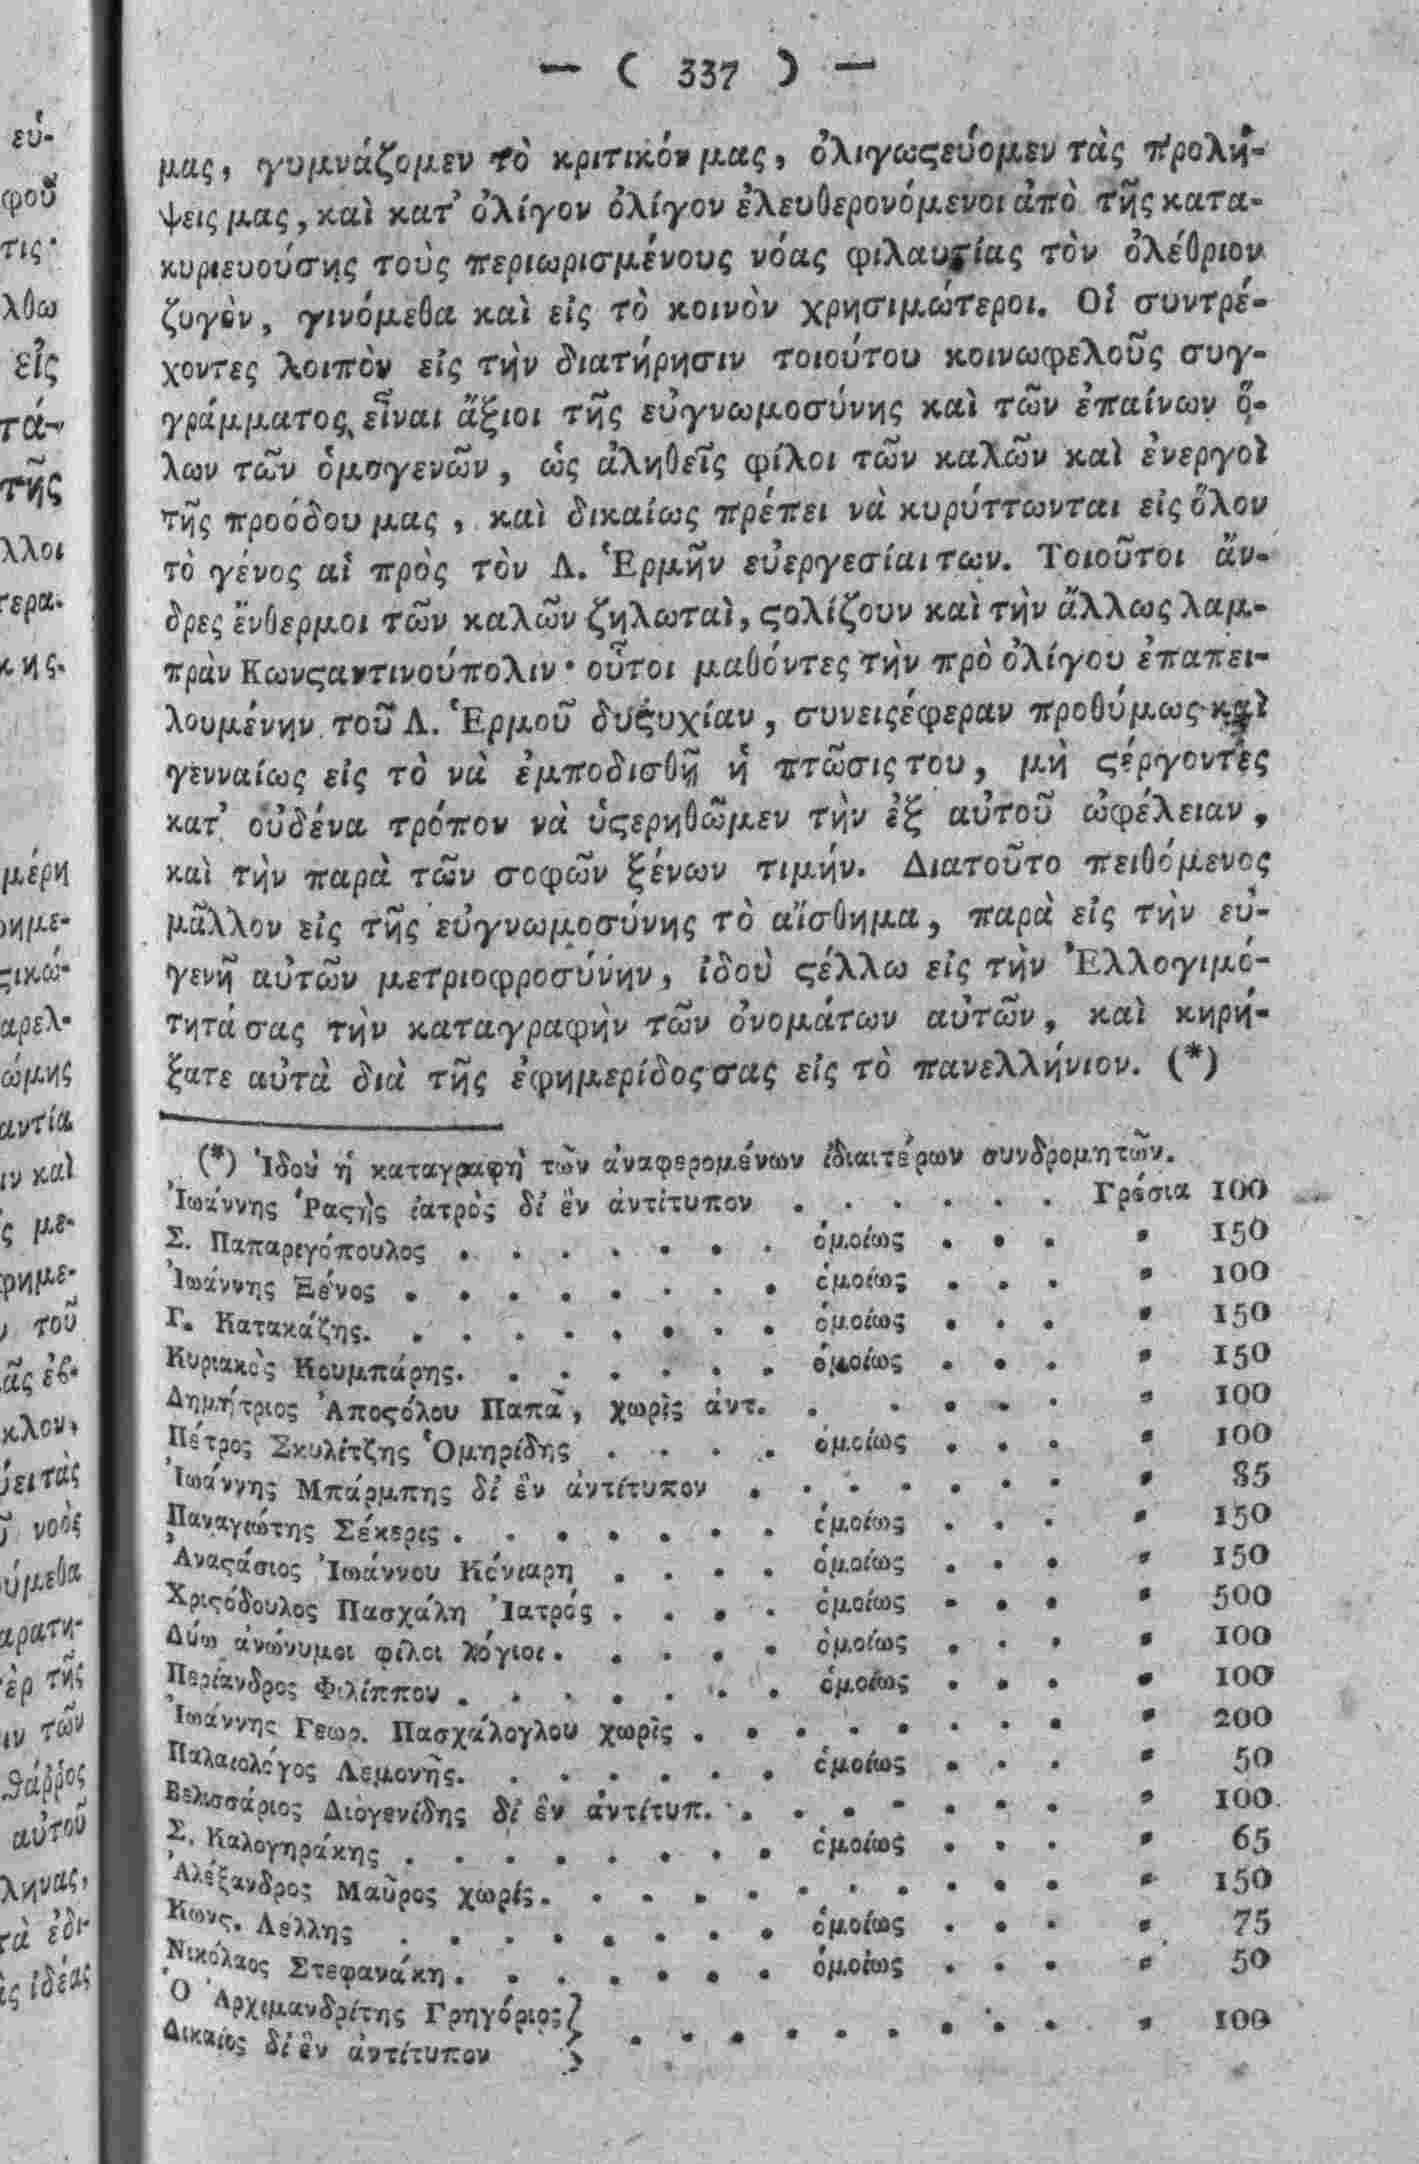 — ( 337 ) —
μας, γυμνάζομεν τὸ κριτικόν μας, ὀλιγωϛεύομεν τὰς προλή-
ψεις μας, καὶ κατ' ὀλίγον ὀλίγον ἐλευθερονόμενοι ἀπὸ τῆς κατα-
κυριευούσης τοὺς περιωρισμένους νόας φιλαυτίας τὸν ὀλέθριον
ζυγὸν, γινόμεθα καὶ εἰς τὸ κοινὸν χρησιμώτεροι. Οἱ συντρέ-
χοντες λοιπὸν εἰς τὴν διατήρησιν τοιούτου κοινωφελοῦς συγ-
γράμματος, εἶναι ἄξιοι τῆς εὐγνωμοσύνης καὶ τῶν ἐπαίνων ὅ-
λων τῶν ὁμογενῶν, ὡς ἀληθεῖς φίλοι τῶν καλῶν καὶ ἐνεργοὶ
τῆς προόδου μας, καὶ δικαίως πρέπει νὰ κυρύττωνται εἰς ὅλον
τὸ γένος αἱ πρὸς τὸν Λ. Ἑρμῆν εὐεργεσίαι των. Τοιοῦτοι ἄν-
δρες ἔνθερμοι τῶν καλῶν ζηλωταὶ, ϛολίζουν καὶ τὴν ἄλλως λαμ-
πρὰν Κωνϛαντινούπολιν· οὗτοι μαθόντες τὴν πρὸ ὀλίγου ἐπαπει-
λουμένην τοῦ Λ. Ἑρμοῦ δυϛυχίαν, συνειςέφεραν προθύμως καὶ
γενναίως εἰς τὸ νὰ ἐμποδισθῇ ἡ πτῶσις του, μὴ ϛέργοντες
κατ' οὐδένα τρόπον νὰ ὑϛερηθῶμεν τὴν ἐξ αὐτοῦ ὠφέλειαν,
καὶ τὴν παρὰ τῶν σοφῶν ξένων τιμήν. Διατοῦτο πειθόμενος
μᾶλλον εἰς τῆς εὐγνωμοσύνης τὸ αἴσθημα, παρὰ εἰς τὴν εὐ-
γενῆ αὐτῶν μετριοφροσύνην, ἰδοὺ ϛέλλω εἰς τὴν Ἐλλογιμό-
τητά σας τὴν καταγραφὴν τῶν ὀνομάτων αὐτῶν, καὶ κηρή-
ξατε αὐτὰ διὰ τῆς ἐφημερίδος σας εἰς τὸ πανελλήνιον. (*)
(*) Ἰδοὺ ἡ καταγραφὴ τῶν ἀναφερομένων ἰδιαιτέρων συνδρομητῶν.
Ἰωάννης Ῥαϛὴς ἰατρὸς δἰ ἓν ἀντίτυπον . . . . . . Γρόσια 100
Σ. Παπαρεγόπουλος . . . . . . . ὁμοίως . . . " 150
Ἰωάννης Ξένος . . . . . . . . ὁμοίως . . . " 100
Γ. Κατακάζης. . . . . . . . . ὁμοίως . . . " 150
Κυριακὸς Κουμπάρης. . . . . . . ὁμοίως . . . " 150
Δημήτριος Ἀποϛόλου Παπᾶ, χωρὶς ἀντ. . . . . . " 100
Πέτρος Σκυλίτζης Ὁμηρίδης . . . . ὁμοίως . . . " 100
Ἰωάννης Μπάρμπης δἰ ἓν ἀντίτυπον . . . . . . . " 85
Παναγιώτης Σέκερις . . . . . . . ὁμοίως . . . " 150
Ἀναϛάσιος Ἰωάννου Κόνιαρη . . . . ὁμοίως . . . " 150
Χριϛόδουλος Πασχάλη Ἰατρός . . . . ὁμοίως . . . " 500
Δύω ἀνώνυμοι φίλοι λόγιοι. . . . . ὁμοίως . . . " 100
Περίανδρος Φιλίππου . . . . . . . ὁμοίως . . . " 100
Ἰωάννης Γεωρ. Πασχάλογλου χωρὶς . . . . . . . . " 200
Παλαιολόγος Λεμονῆς. . . . . . . ὁμοίως . . . " 50
Βελισσάριος Διογενίδης δἰ ἓν ἀντίτυπ. . . . . . . . " 100
Σ. Καλογηράκης . . . . . . . . ὁμοίως . . . " 65
Ἀλέξανδρος Μαῦρος χωρίς. . . . . . . . . . . " 150
Κωνϛ. Λέλλης . . . . . . . . ὁμοίως . . . " 75
Νικόλαος Στεφανάκη . . . . . . . ὁμοίως . . . " 50
Ὁ Ἀρχιμανδρίτης Γρηγόριος }
Δικαίος δἰ ἓν ἀντίτυπον } . . . . . . . . . " 100
εὐ-
φοῦ
τις·
λθω
εἰς
τά-
τῆς
λλοι
τερα.
κης.
μέρη
ημε-
ϛικώ-
αρελ-
ώμης
αντία
ιν καὶ
ς με-
φημε-
τοῦ
ᾶς ἐβ-
κλον,
ύει τὰς
νοὸς
ύμεθα
αρατη-
ὲρ τῆς
ιν τῶν
θάῤῥος
αὐτοῦ
ληνας,
τὰ ἐδι-
ὰς ἰδέας